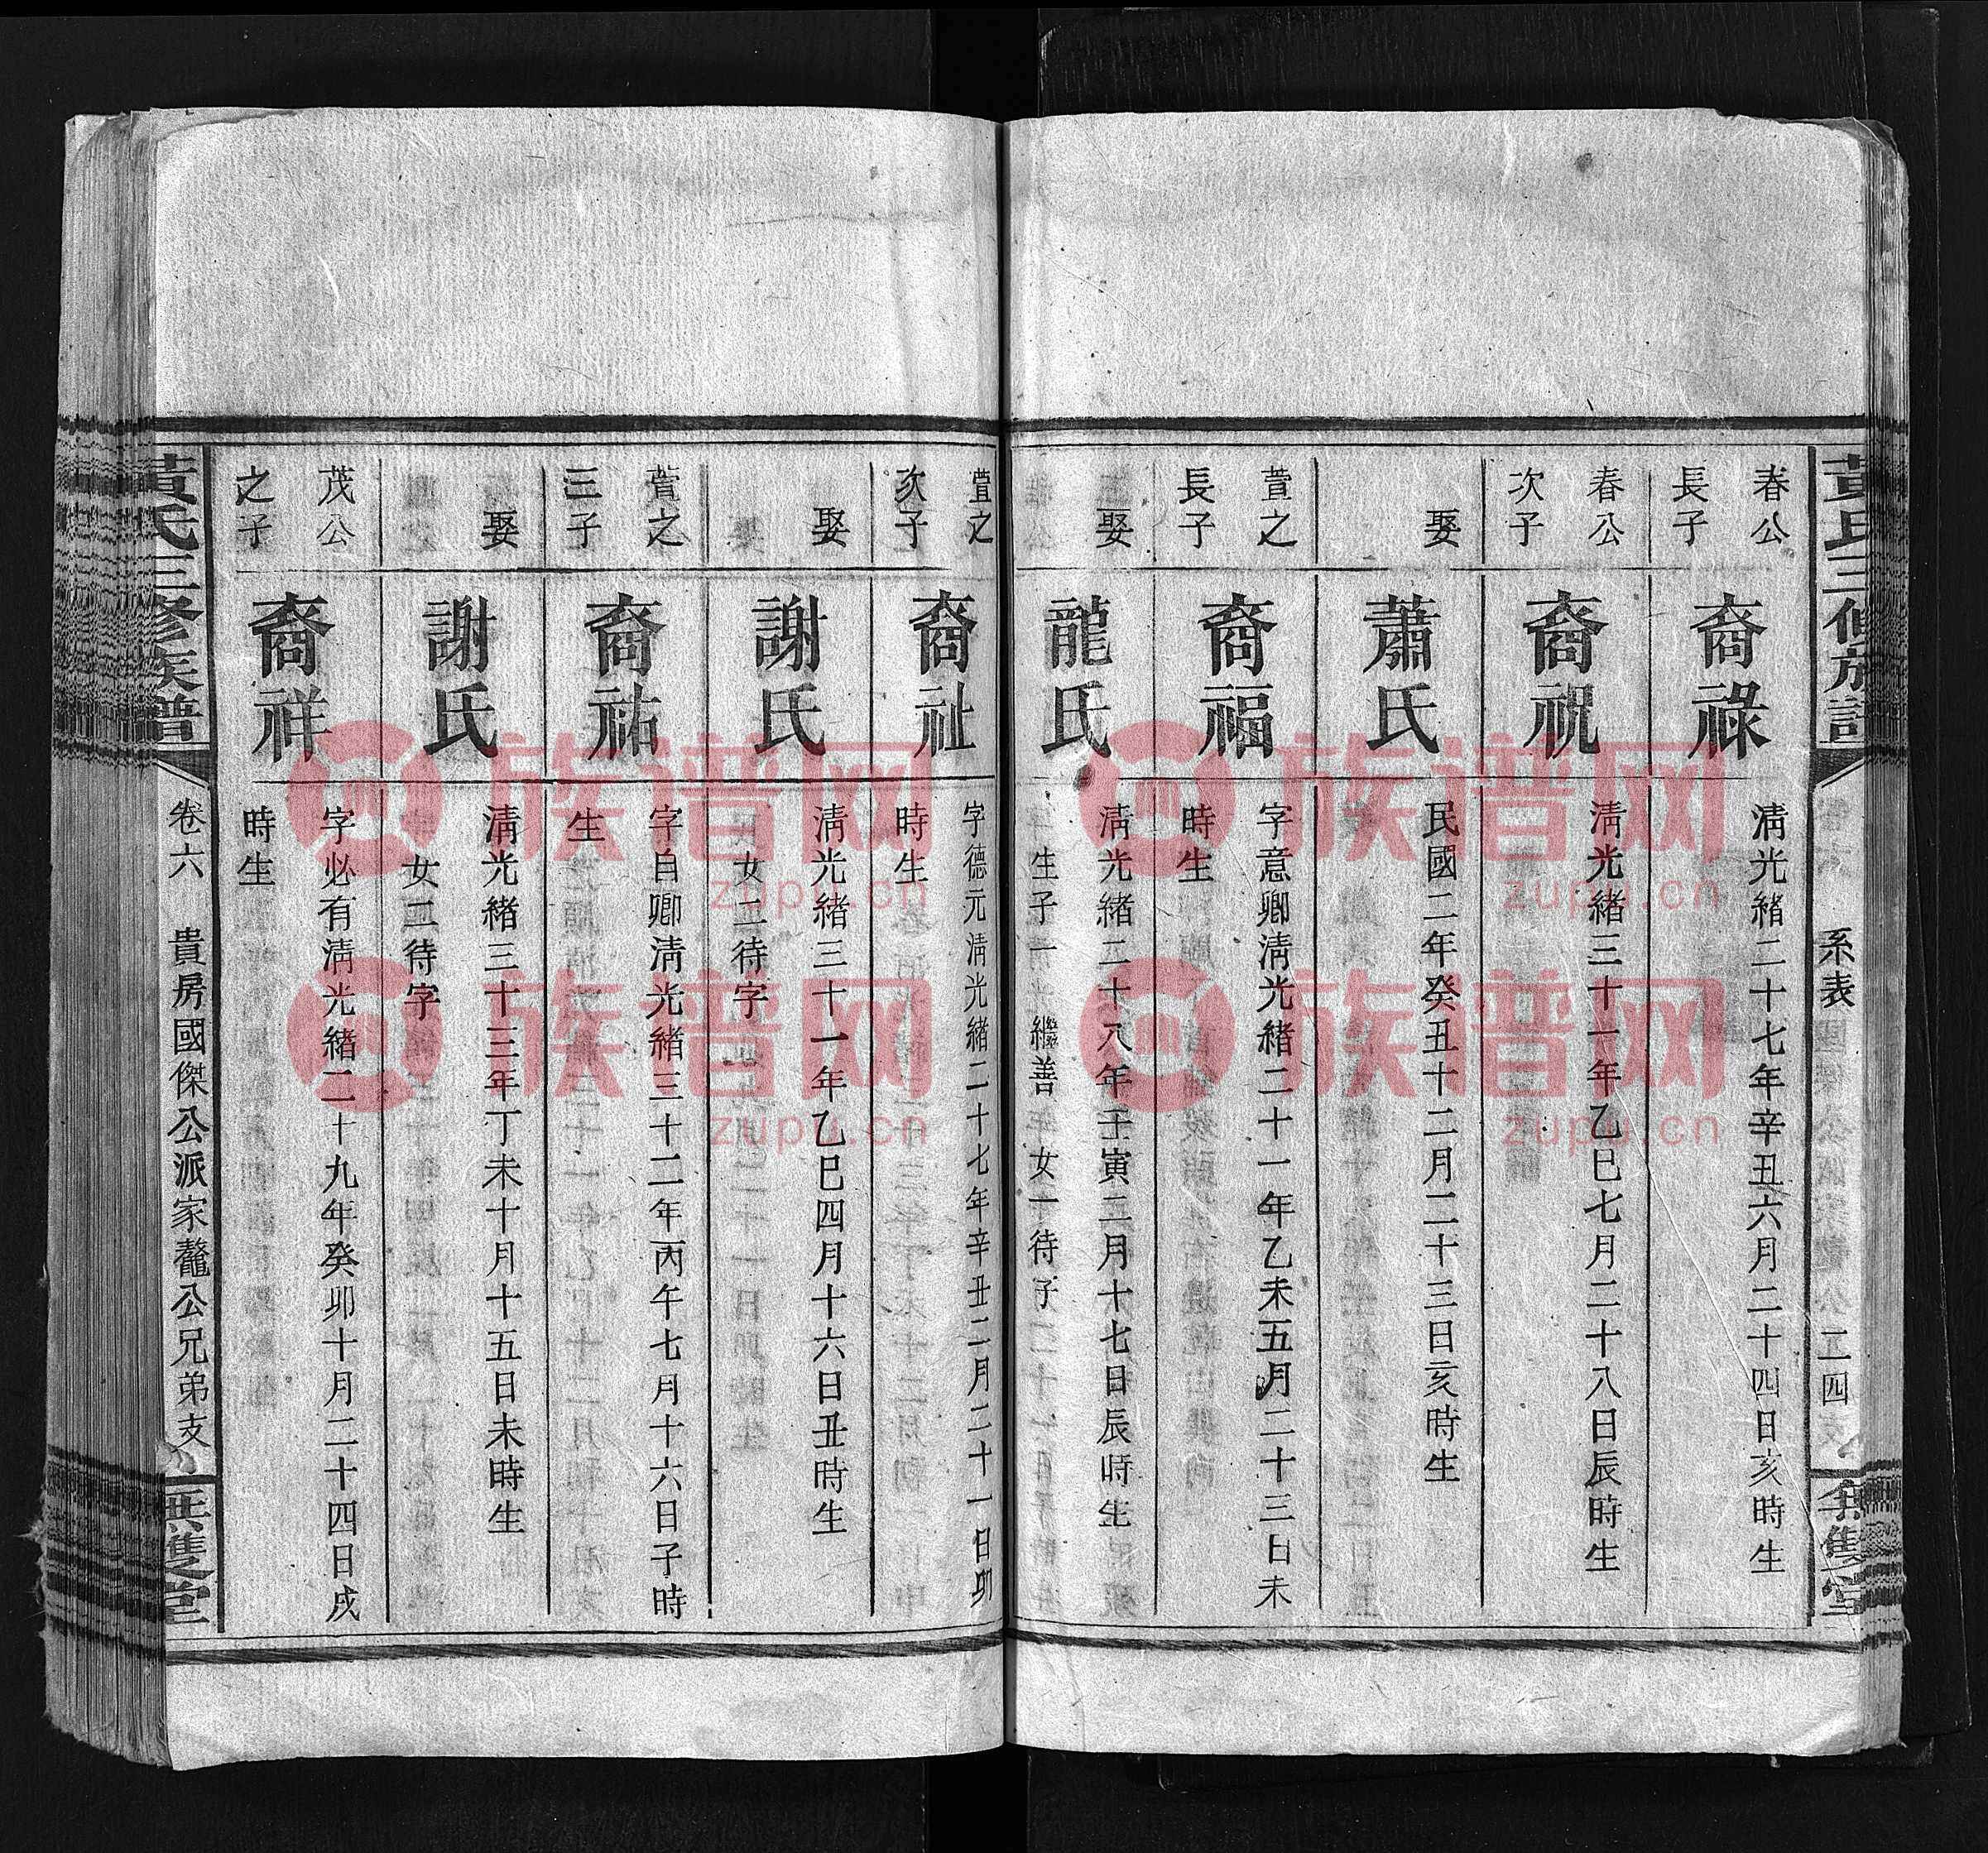 黃氏三修族譜
系表
二四
春公
長子
裔祿
清光緒二十七年辛丑六月二十四日亥時生
春公
次子
裔祝
清光緒三十一年乙巳七月二十八日辰時生
娶
蕭氏
民國二年癸丑十二月二十三日亥時生
萱之
長子
裔福
字意卿清光緒二十一年乙未五月二十三日未
時生
娶
龍氏
清光緒二十八年壬寅三月十七日辰時生
生子一 繼善 女一待字
萱之
次子
裔祉
字德元清光緒二十七年辛丑二月二十一日卯
時生
娶
謝氏
清光緒三十一年乙巳四月十六日丑時生
女二待字
萱之
三子
裔祐
字自卿清光緒三十二年丙午七月十六日子時
生
娶
謝氏
清光緒三十三年丁未十月十五日未時生
女二待字
茂公
之子
裔祥
字必有清光緒二十九年癸卯十月二十四日戌
時生
黃氏三修族譜
卷六
貴房國傑公派家鼇公兄弟支
雙堂
族谱网
zupu.cn
族谱网
zupu.cn
族谱网
zupu.cn
族谱网
zupu.cn